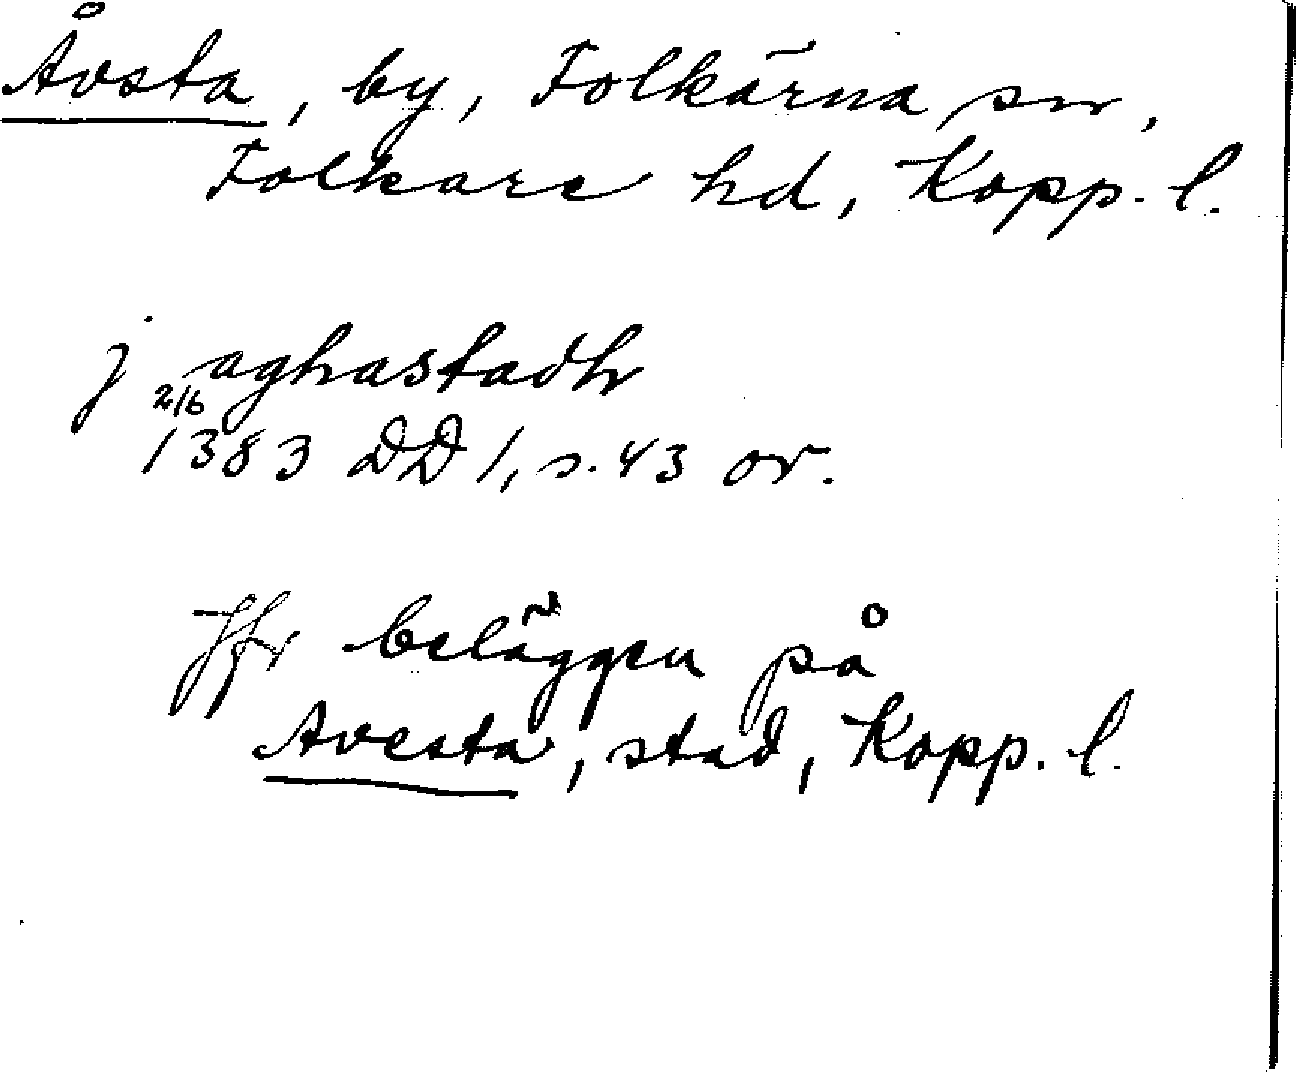 Åvsta, by, Folkärna sn,
Folkare hd, Kopp. l.
j aghastadh
2/6
1383 DD 1, s. 43 or.
Jfr beläggen på
Avesta, stad, Kopp. l.